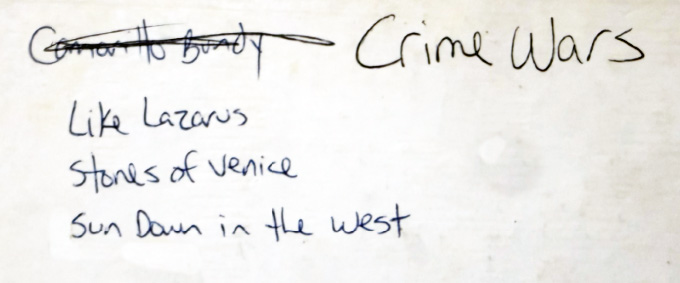 Camarillo Bundy Crime Wars
Like Lazarus
Stones of Venice
Sun Down in the West